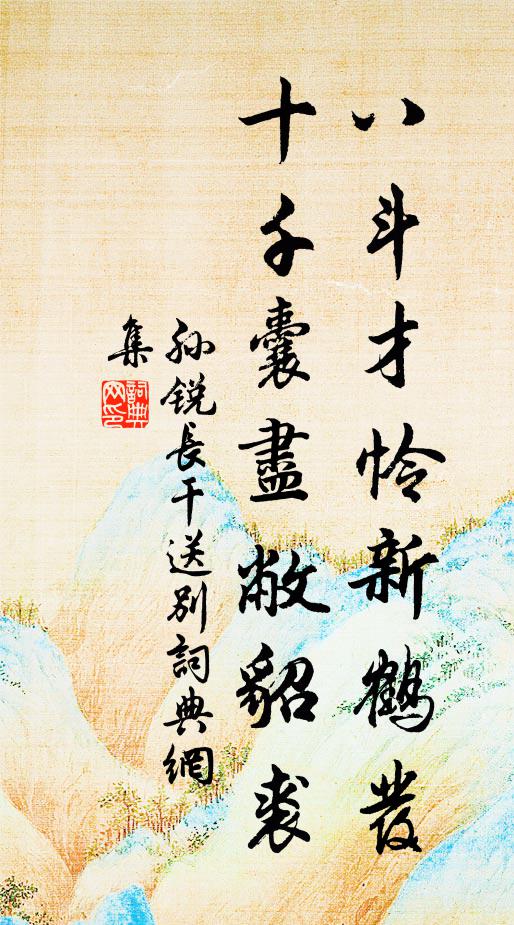 八斗才怜新鹤发
十千囊盡敝貂裘
孙锐長干送别詞典網
集
詞典网印